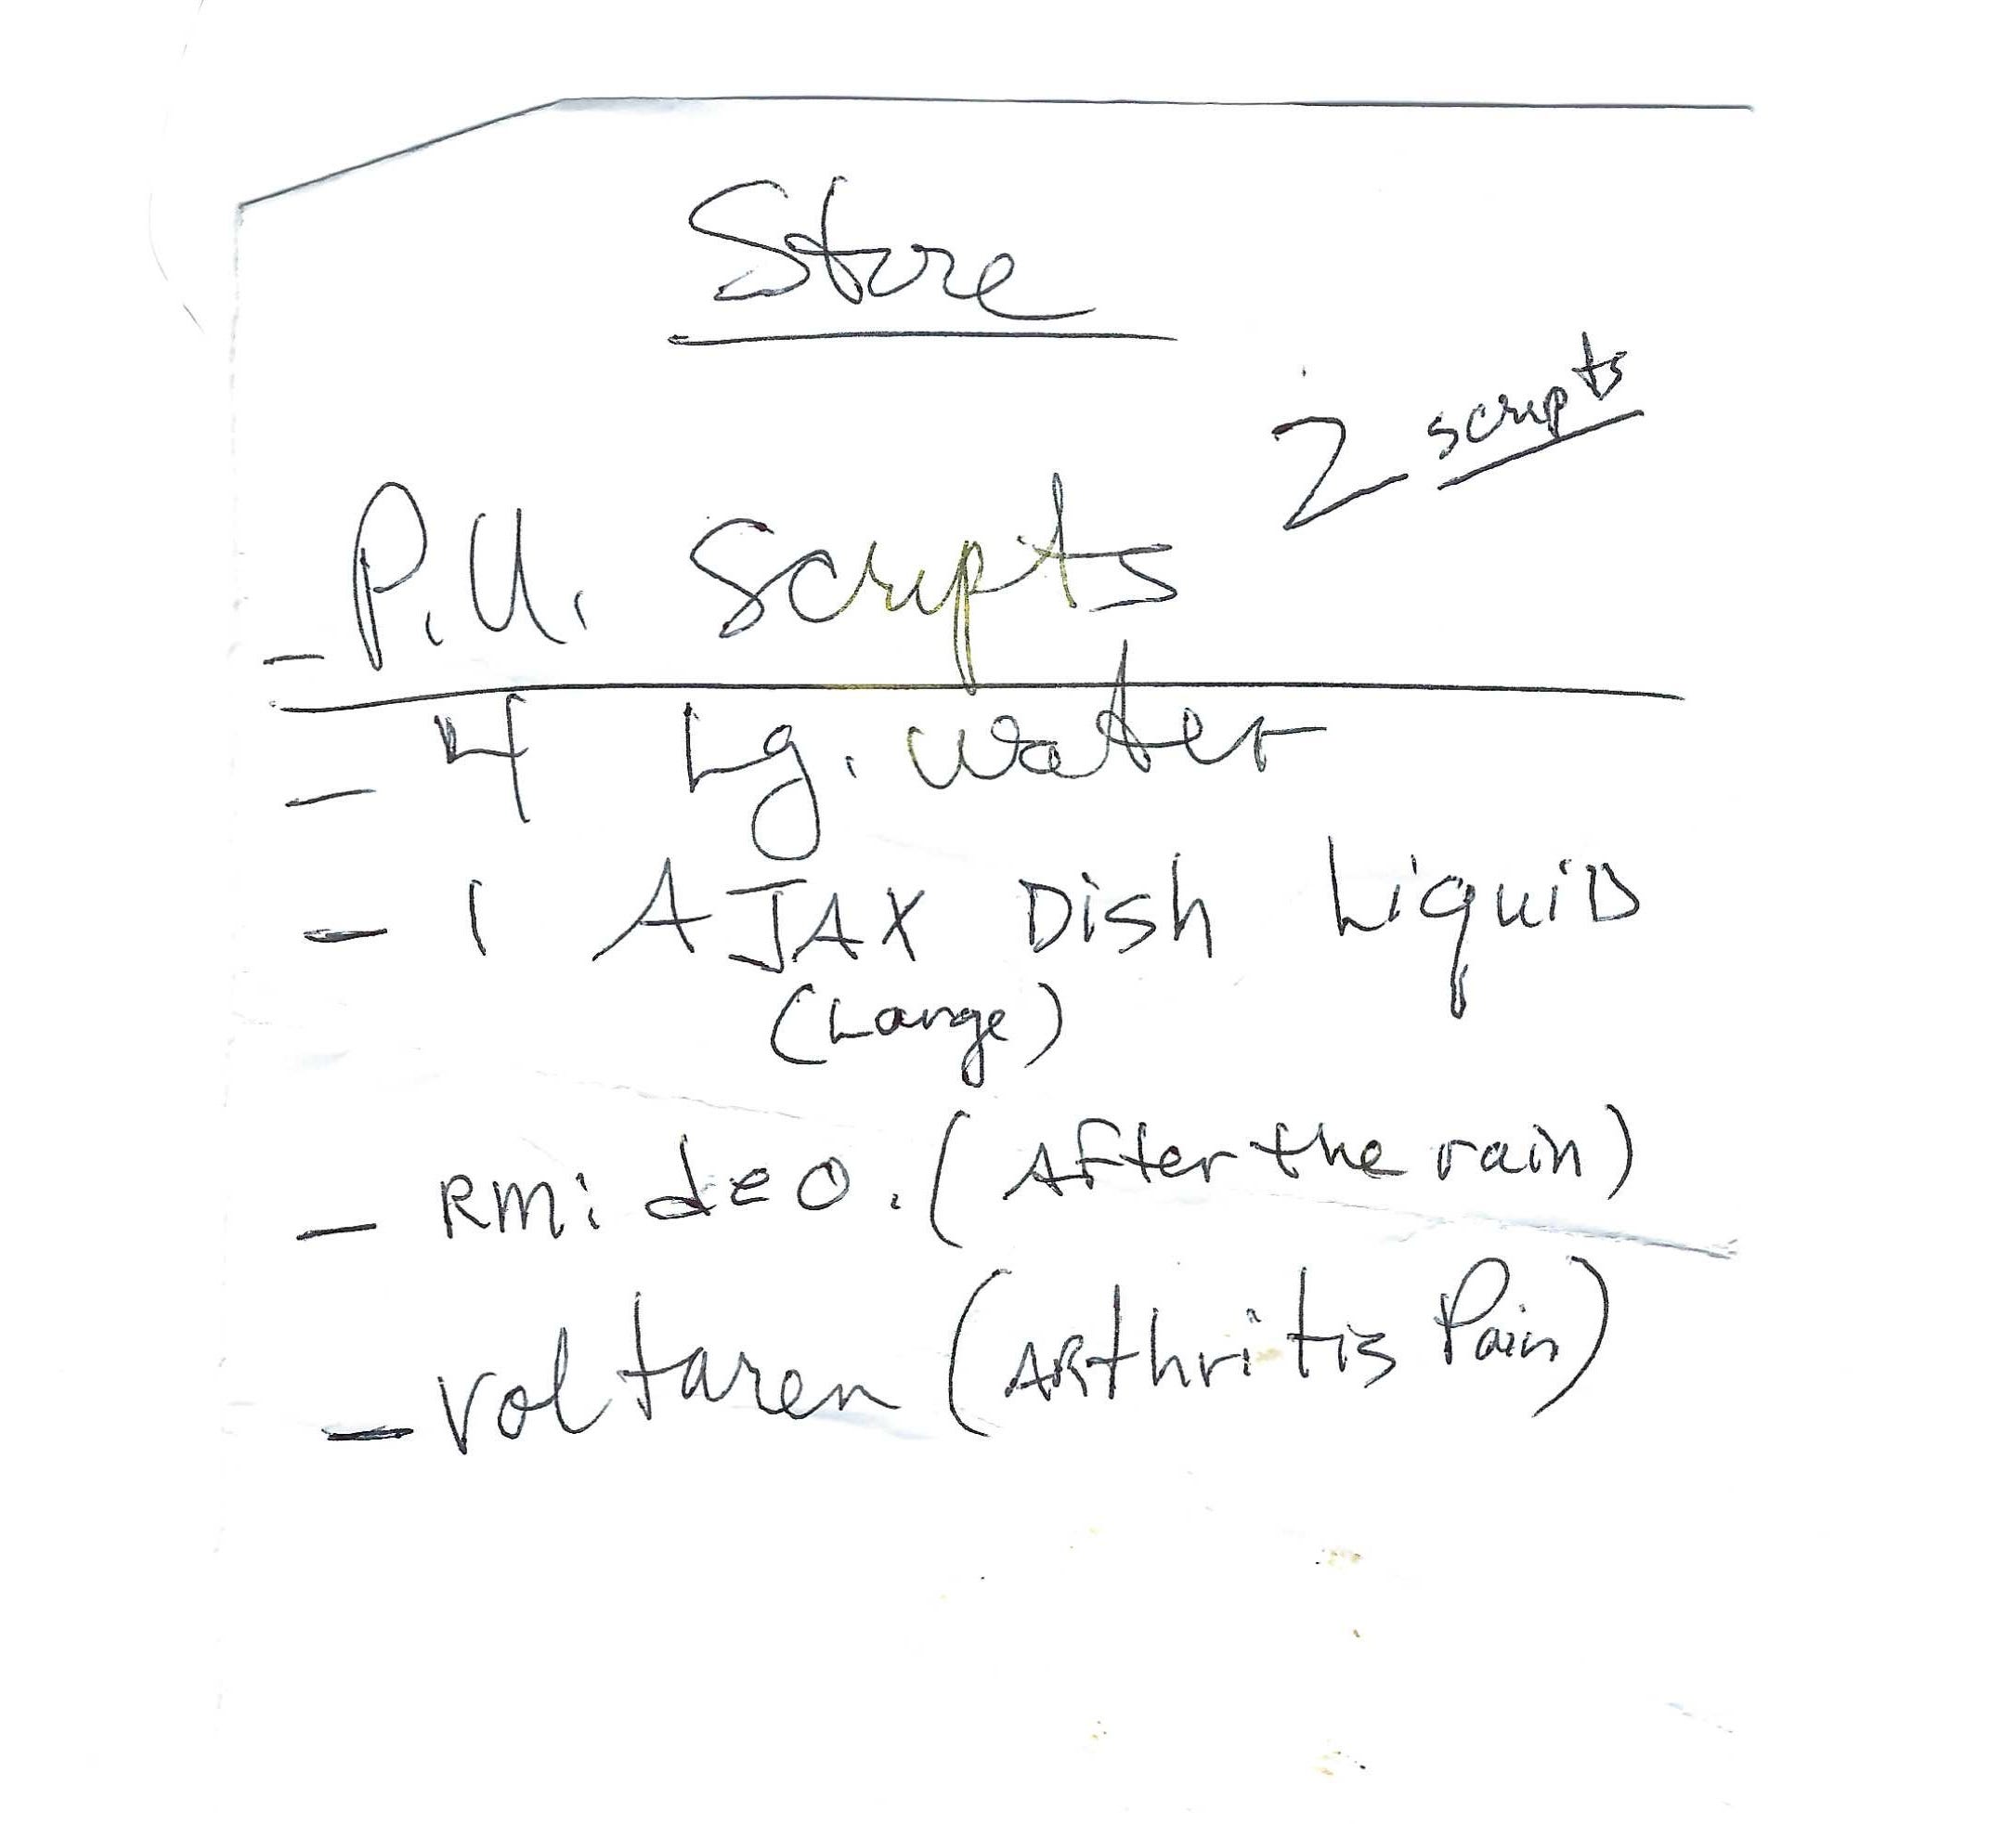 Store
2 scripts
- P.U. Scripts
- 4 Lg. Water
- 1 AJAX Dish LiquiD
(Large)
- RM: deo. (After the rain)
- Voltaren (ARthritis Pain)